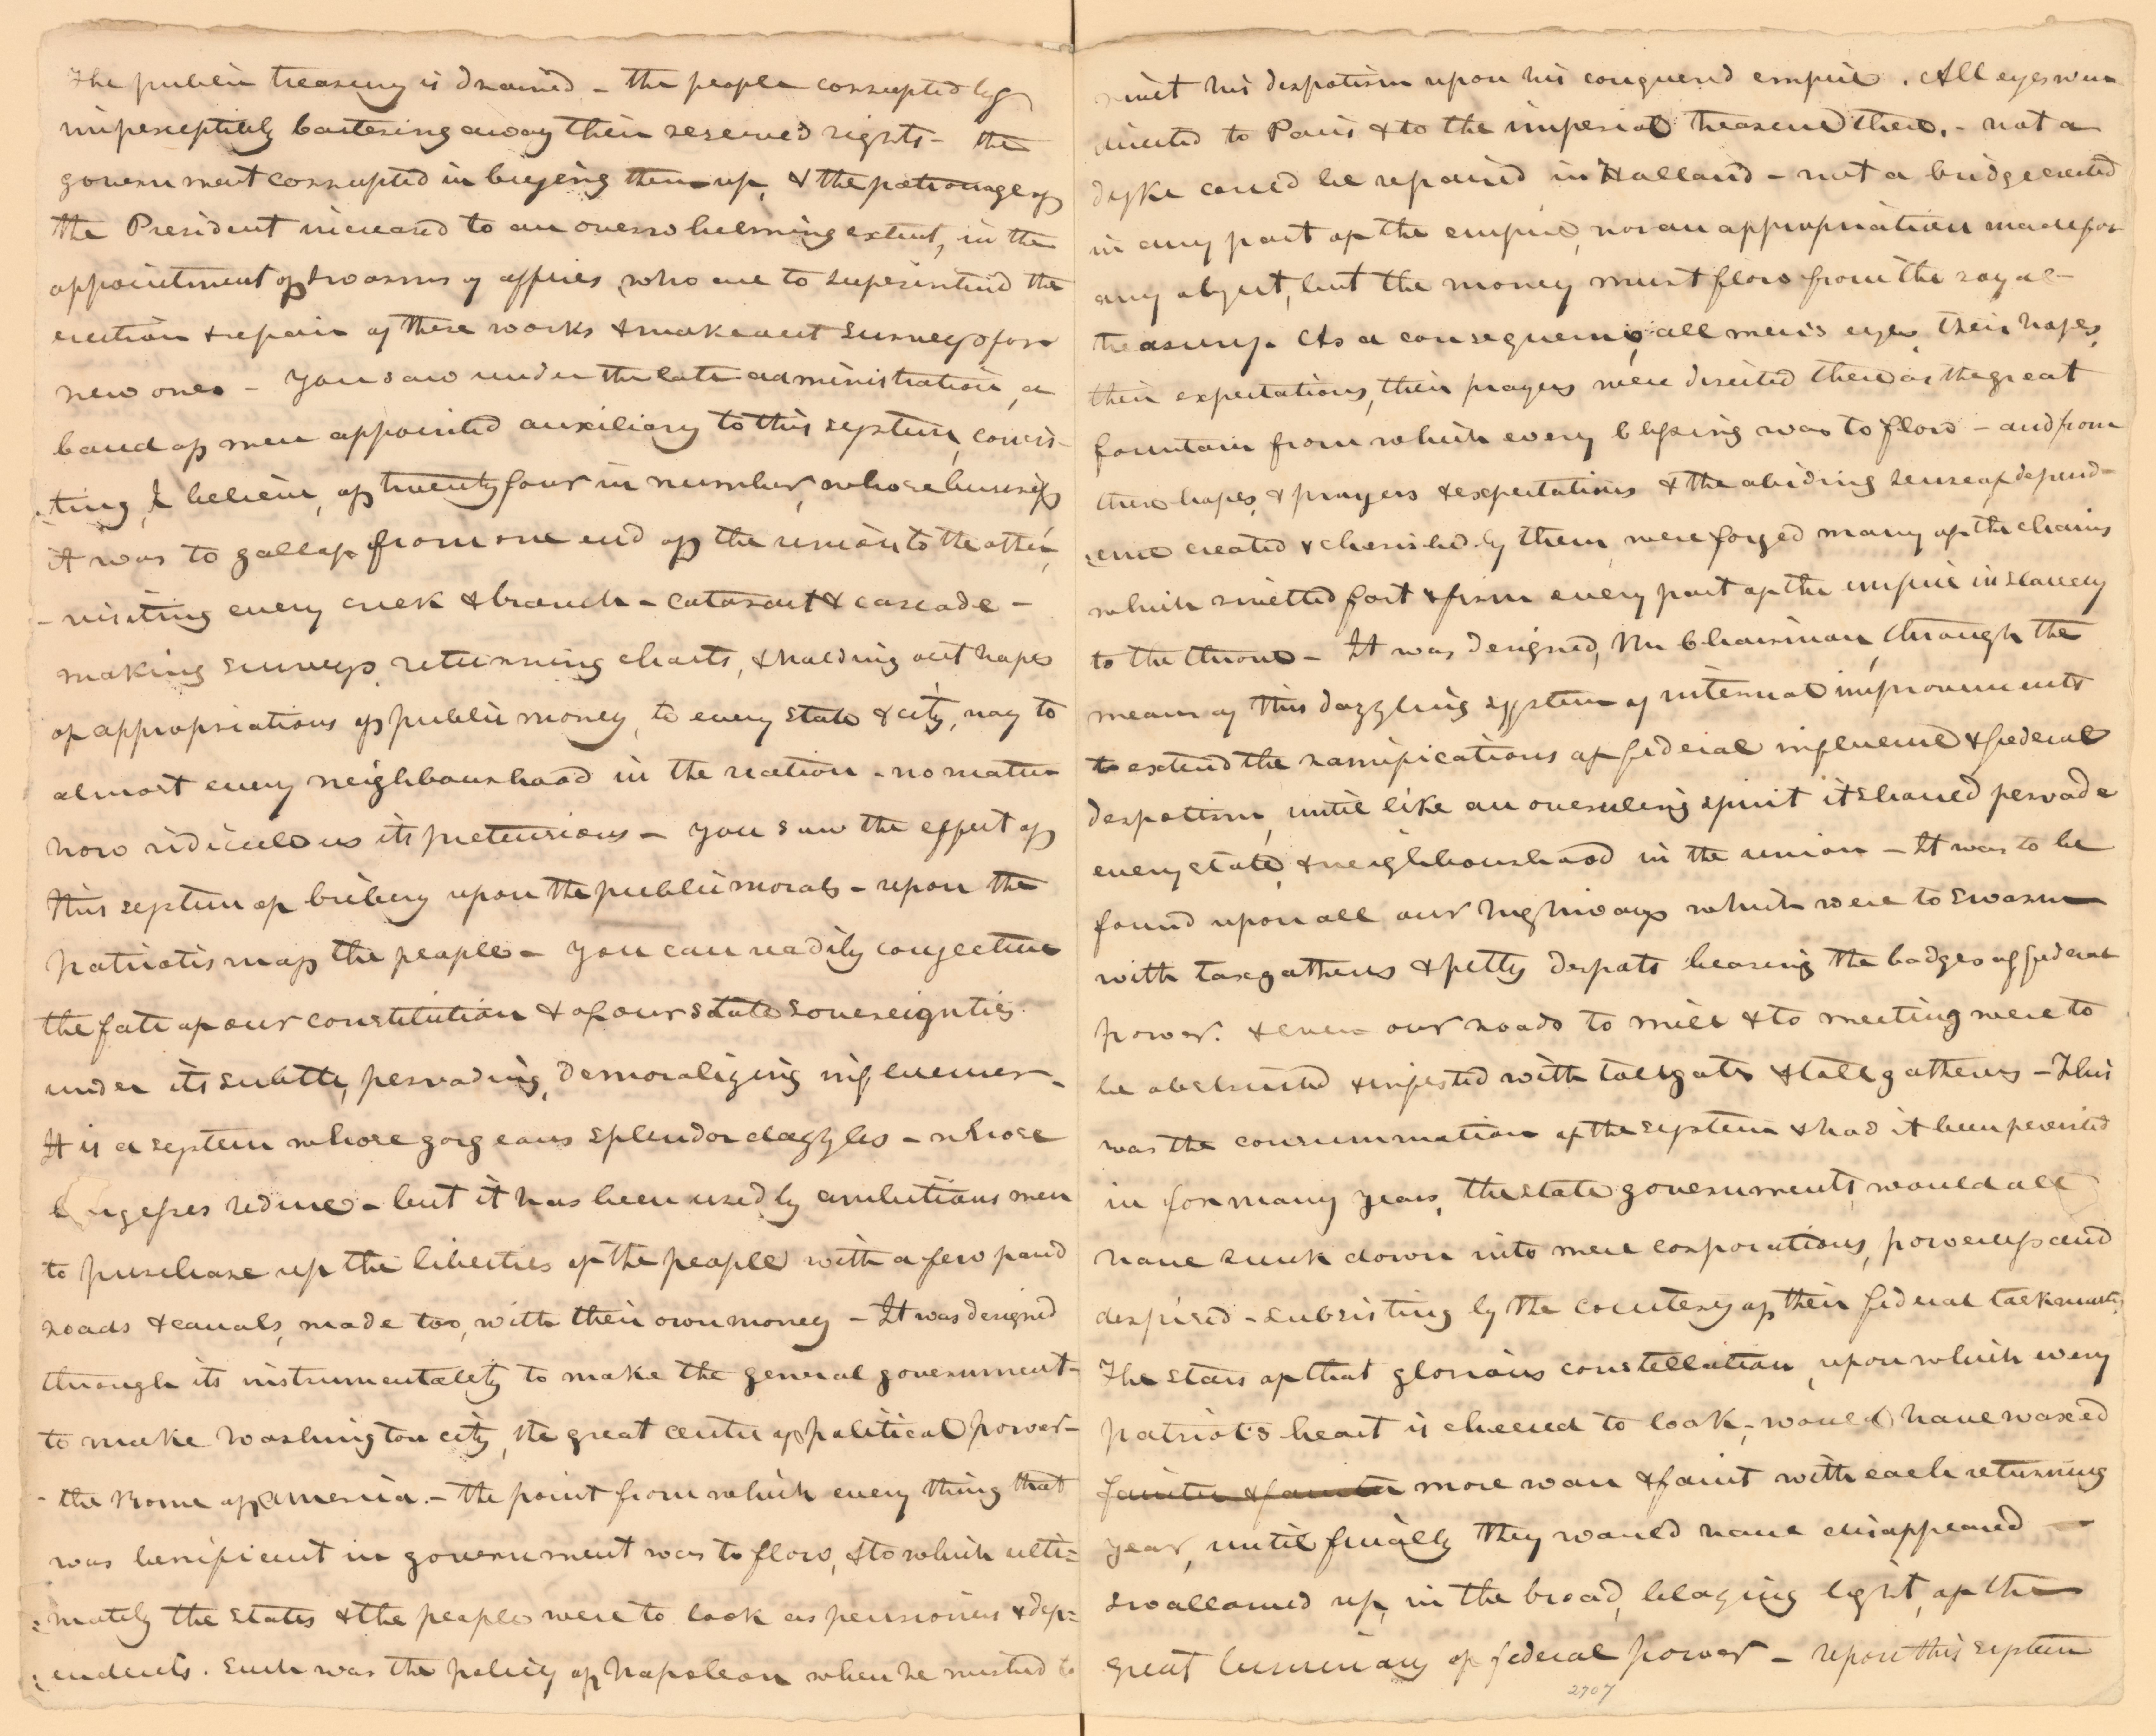 The public treasury is drained – the people corrupted by
imperceptibly bartering away their reserved rights – the
government corrupted in buying them up, & the patronage of
the President increased to an overwhelming extent, in the
appointment of swarms of officers who are to superintend the
erection & repair of these works & make out surveys for
new ones – You saw under the late administration, a
band of men appointed auxiliary to this system, consis-
-ting, I believe, of twenty four in number, whose business
it was to gallop from one end of the union to the other,
- visiting every creek & branch – cataract & cascade –
making surveys, returning charts, & holding out hopes
of appropriations of public money, to every state & city, nay to
almost every neighbourhood in the nation – no matter
how ridiculous its pretensions – You saw the effect of
this system of bribery upon the public morals – upon the
patriotism of the people – You can readily conjecture
the fate of our constitution & of our state sovereignties
under its subtle, pervading, demoralizing influences –
It is a system whose gorgeous splendor dazzles – whose
largesses seduce – but it has been used by ambitious men
to purchase up the liberties of the people with a few paved
roads & canals, made too, with their own money – It was designed
through its instrumentality to make the general government –
to make Washington city, the great center of political power –
- the Rome of America. – the point from which every thing that
was benificent in government was to flow, & to which ulti=
=mately the states & the people were to look as pensioners & dep=
=endents. Such was the policy of Napoleon when he wished to
rivet his despotism upon his conquered empire. All eyes were
directed to Paris & to the imperial treasure there. – not a
dyke could be repaired in Holland – not a bridge erected
in any part of the empire, nor an appropriation made for
any object, but the money must flow from the royal
treasury. As a consequence, all men's eyes, their hopes,
their expectations, their prayers were directed there as the great
fountain from which every blessing was to flow – and from
these hopes, & prayers & expectations & the abiding sense of depend-
-ence created & cherished by them, were forged many of the chains
which rivetted fast & firm every part of the empire in slavery
to the throne – It was designed, Mr Chairman, through the
means of this dazzling system of internal improvements
to extend the ramifications of federal influence & federal
despotism, until like an overruling spirit it should pervade
every state, & neighbourhood in the union – It was to be
found upon all our highways which were to swarm
with taxgathers & petty despots bearing the badges of federal
power. & even our roads to mill & to meeting were to
be obstructed & infested with tollgates & tollgatherers – This
was the consummation of the system & had it been persisted
in for many years, the state governments, would all
have sunk down into mere corporations, powerless and
despised – subsisting by the courtesy of their federal taskmasters,
The stars of that glorious constellation, upon which every
patriot's heart is cheered to look, – would have waxed
fainter & fainter more wan & faint with each returning
year, until finally they would have disappeared –
swallowed up, in the broad, blazing light, of the
great luminary of federal power – upon this system
2907